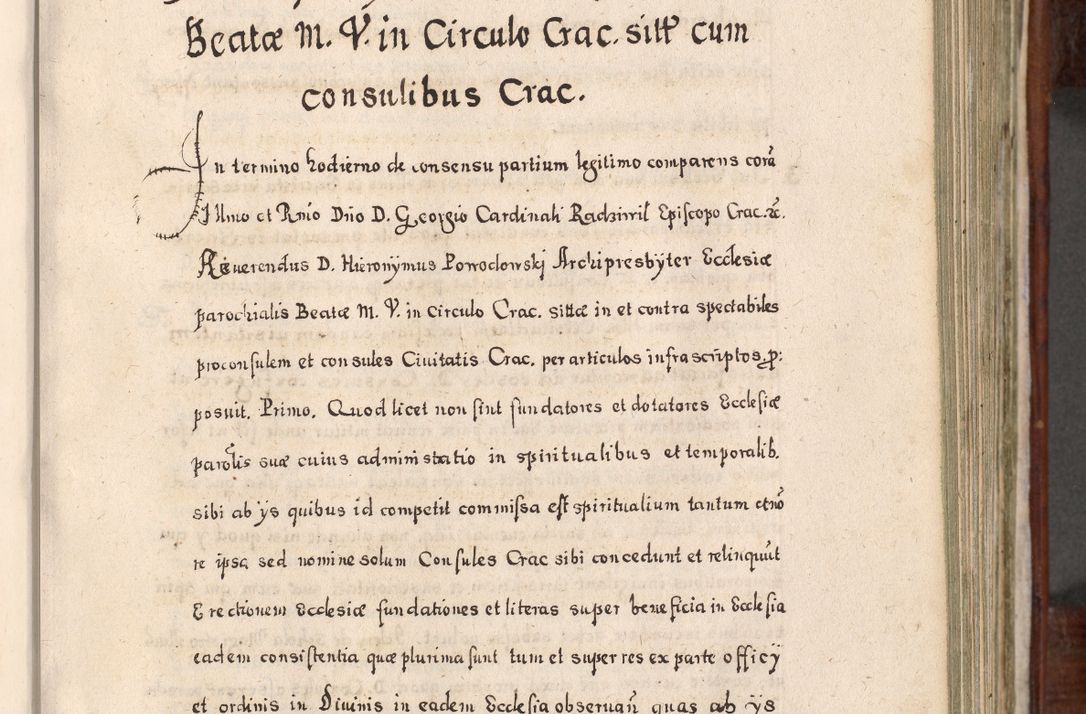 Beatæ M. V. in Circulo Crac. sitæ cum
consulibus Crac.
In termino hodierno de consensu partium legitimo comparens corã
Illmo et Rmo Dno D. Georgio Cardinali Radziwil Episcopo Crac. &c.
Reuerendus D. Hieronÿmus Powodowskj Archipresbÿter Ecclesiæ
parochialis Beatæ M. V. in circulo Crac. sittæ in et contra spectabiles
proconsulem et consules Ciuitatis Crac. per articulos infrascriptos pro:
posuit. Primo. Quod licet non sint fundatores et dotatores Ecclesiæ
parolis suæ cuius administatio in spiritualibus et temporalib.
sibi ab ÿs quibus id competit commissa est spiritualium tantum et nõ
re ipsa sed nomine solum Consules Crac sibi concedunt et relinquũt
Erectionem Ecclesiæ fundationes et literas super beneficia in Ecclesia
eadem consistentia quæ plurima sunt tum et super res ex parte officÿ
et ordinis in Diuinis in eadem Ecclesia obseruañ quas ab ÿs